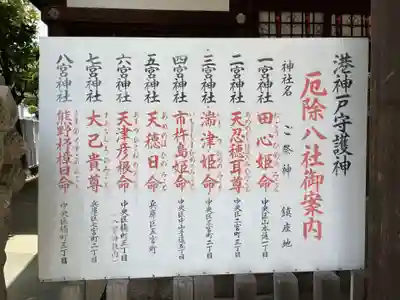 港神戸守護神
厄除八社御案内
神社名 ご祭神 鎮座地
一宮神社 田心姫命 中央区山本通一丁目
二宮神社 天忍穂耳尊 中央区二宮町三丁目
三宮神社 湍津姫命 中央区三宮町二丁目
四宮神社 市杵島姫命 中央区中山手通五丁目
五宮神社 天穂日命 兵庫区五宮町
六宮神社 天津彦根命 中央区楠町三丁目
(八宮神社内)
七宮神社 大己貴尊 兵庫区七宮町二丁目
八宮神社 熊野杼樟日命 中央区楠町三丁目